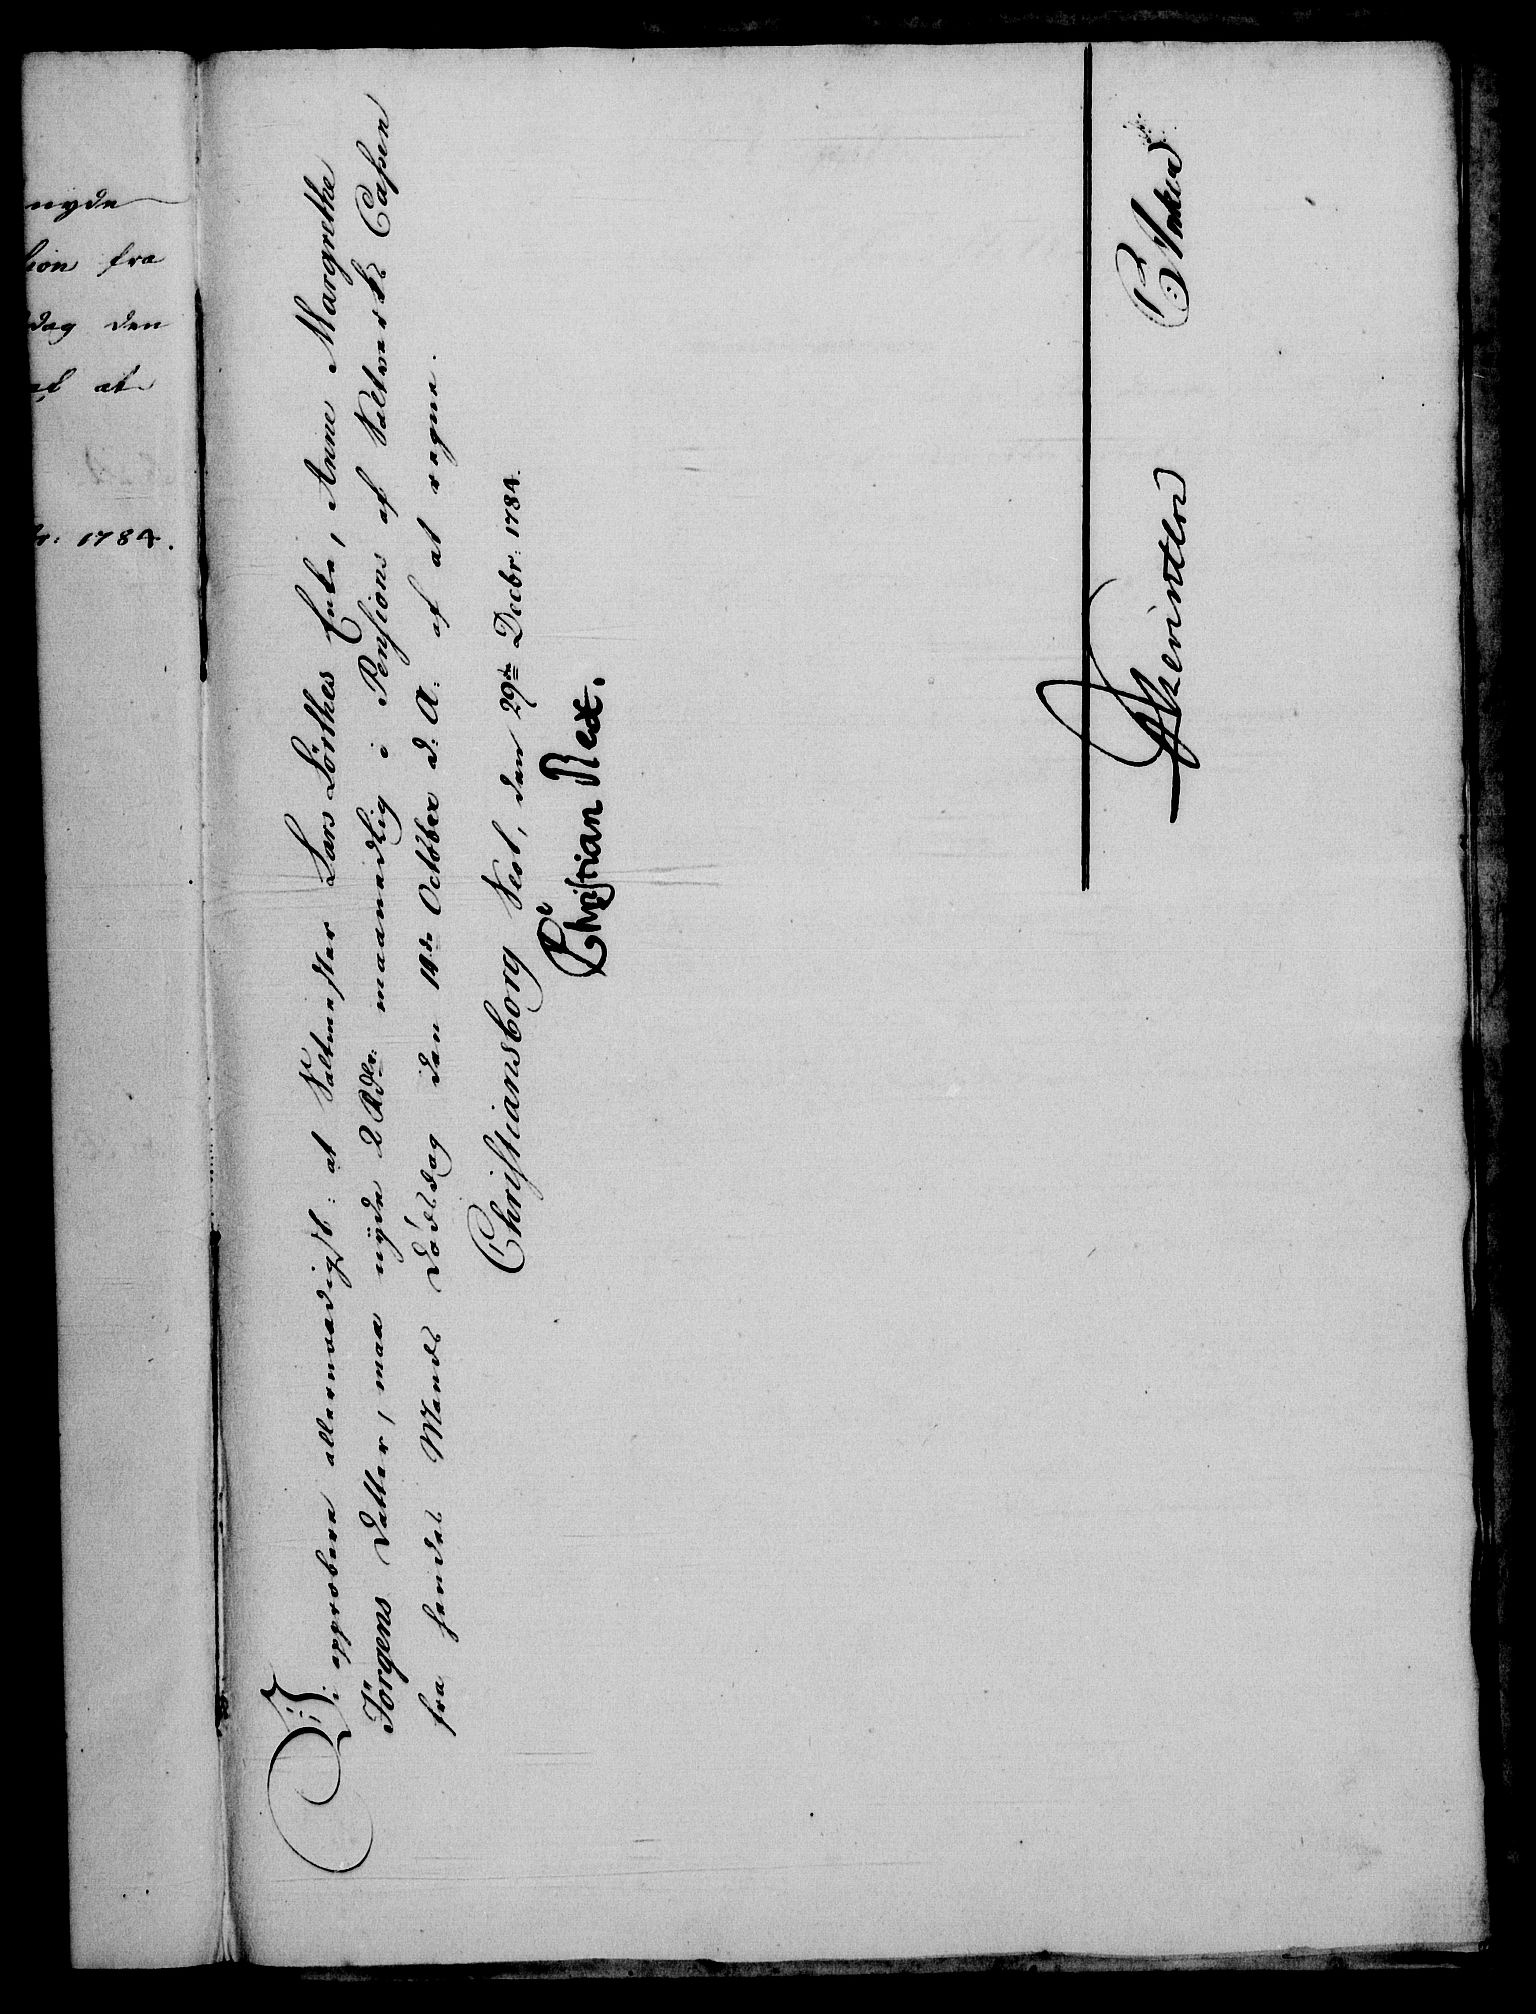 nyde
sion fra
dag den
af at
br: 1784.
Vi approbere allernaadigst: at Saltmester Lars Lørthes Enke, Anne Margrethe
Jörgens Datter, maa nyde 2 Rdlr: maanedlig i Pensions af Saltverks Cassen
fra hendes Mands Dødsdag den 14de October d: A: af at regne.
Christiansborg Slot, den 29de Decbr: 1784.
Christian Rex.